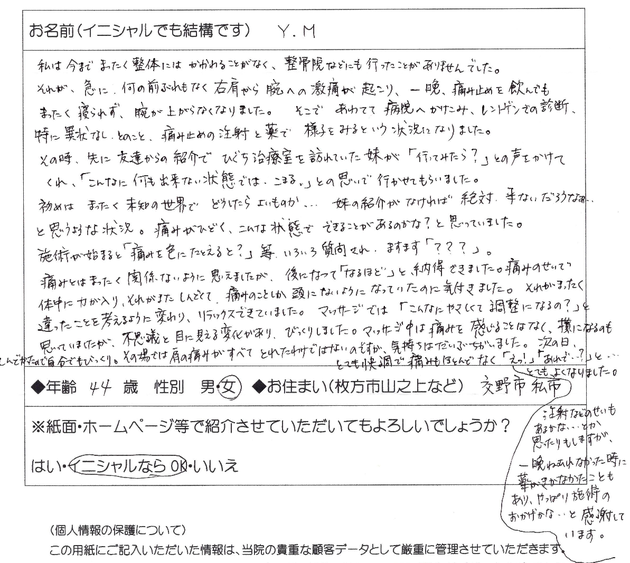 お名前(イニシャルでも結構です) Y.M
私は今までまったく整体にはかかわることがなく、整骨院などにも行ったことがありませんでした。
それが、急に、何の前ぶれもなく右肩から腕への激痛が起こり、一晩、痛み止めを飲んでも
まったく寝られず、腕が上がらなくなりました。そこであわてて病院へかけこみ、レントゲンでの診断、
特に異状なしとのこと、痛み止めの注射と薬で様子をみるという状況になりました。
その時、先に友達からの紹介でひぐち治療室を訪れていた妹が「行ってみたら?」との声をかけて
くれ、「こんなに何も出来ない状態では、こまる。」との思いで行かせてもらいました。
初めはまったく未知の世界でどうしたらよいものか… 妹の紹介がなければ絶対、来ないだろうなぁ…
と思うような状況。痛みがひどく、こんな状態でできることがあるのかな?と思っていました。
施術が始まると「痛みを色にたとえると?」等、いろいろ質問され、ますます「???」。
痛みとはまったく関係ないように思えましたが、後になって「なるほど」と納得できました。痛みのせいで
体中に力が入り、それがまたしんどくて、痛みのことしか頭にないようになっていたのに気付きました。それがまたく
違ったことを考えるように変わり、リラックスできていました。マッサージでは「こんなにやさしくて調整になるの?」と
思っていましたが、不思議と目に見える変化があり、びっくりしました。マッサージ中は痛みを感じることはなく、横になるのも
しんどかたので自分でもびっくり。その場では肩の痛みがすべてとれたわけではないのですが、気持ちはだいぶちがいました。次の日、
とても快調で痛みもほとんどなく「えっ!」「あれぇ…?」と…
とてもよくなりました。
◆年齢 44 歳 性別 男・女 ◆お住まい(枚方市山之上など) 交野市私市
注射なのせいも
あるかな…とか
思ったりもしますが、
一晩ねむれなかった時に
薬がきかなかたことも
あり、やっぱり施術の
おかげかな…と感謝して
います。
※紙面・ホームページ等で紹介させていただいてもよろしいでしょうか?
はい・イニシャルならOK・いいえ
(個人情報の保護について)
この用紙にご記入いただいた情報は、当院の貴重な顧客データとして厳重に管理させていただきます。